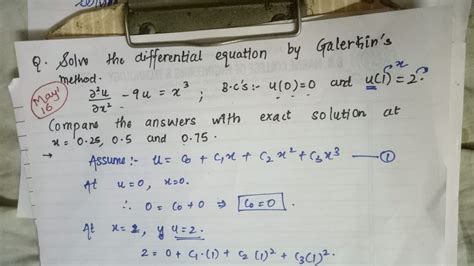 Q. Solve the differential equation by Galerkin's
method.
May' 16
∂²u/∂x² - 9u = x³ ; B.C's :- u(0)=0 and u(1)=2.
x
Compare the answers with exact solution at
x = 0.25, 0.5 and 0.75.
→ Assume :- u = c₀ + c₁x + c₂x² + c₃x³ —— ①
At u=0, x=0.
∴ 0 = c₀ + 0 ⇒ c₀ = 0.
At x=2, y u=2.
2 = 0 + c₁.(1) + c₂(1)² + c₃(1)².